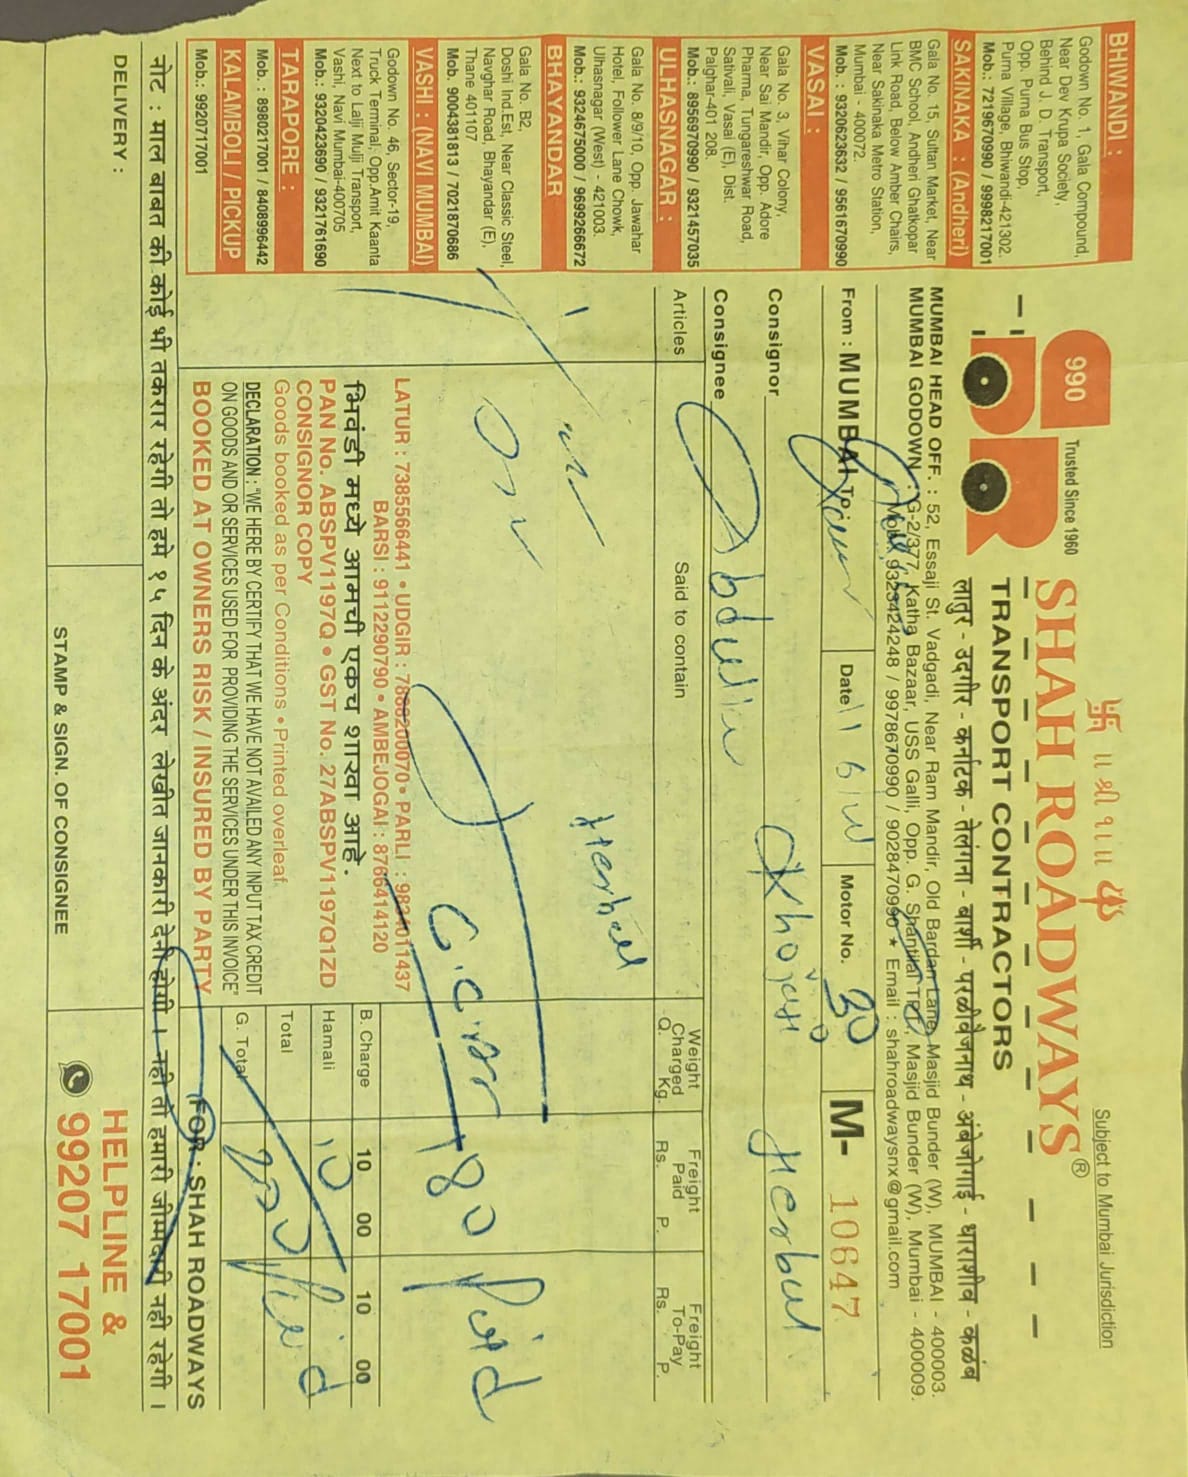 ॥ श्री १॥
Subject to Mumbai Jurisdiction
990
Trusted Since 1960
SHAH ROADWAYS®
TRANSPORT CONTRACTORS
लातुर - उदगीर - कर्नाटक - तेलंगना - बार्शी - परळीवैजनाथ - अंबेजोगाई - धाराशीव - कळंब
MUMBAI HEAD OFF. : 52, Essaji St. Vadgadi, Near Ram Mandir, Old Bardan Lane, Masjid Bunder (W), MUMBAI - 400003.
MUMBAI GODOWN : G-2/377, Katha Bazaar, USS Galli, Opp. G. Shantilal TPT., Masjid Bunder (W), Mumbai - 400009.
Mob.: 9323424248 / 9978670990 / 9028470990 ★ Email : shahroadwaysnx@gmail.com
BHIWANDI :
Godown No. 1, Gala Compound,
Near Dev Krupa Society,
Behind J. D. Transport,
Opp. Purna Bus Stop,
Purna Village, Bhiwandi-421302.
Mob.: 7219670990 / 9998217001
SAKINAKA : (Andheri)
Gala No. 15, Sultan Market, Near
BMC School, Andheri Ghatkopar
Link Road, Below Amber Chairs,
Near Sakinaka Metro Station,
Mumbai - 400072.
Mob. : 9320623632 / 9561670990
VASAI :
Gala No. 3, Vihar Colony,
Near Sai Mandir, Opp. Adore
Pharma, Tungareshwar Road,
Sativali, Vasai (E), Dist.
Palghar-401 208.
Mob.: 8956970990 / 9321457035
ULHASNAGAR :
Gala No. 8/9/10, Opp. Jawahar
Hotel, Follower Lane Chowk,
Ulhasnagar (West) - 421003.
Mob.: 9324675000 / 9699266672
BHAYANDAR
Gala No. B2,
Doshi Ind.Est, Near Classic Steel,
Navghar Road, Bhayandar (E),
Thane 401107
Mob. 9004381813 / 7021870686
VASHI : (NAVI MUMBAI)
Godown No. 46, Sector-19,
Truck Terminal, Opp.Amit Kaanta
Next to Lalji Mulji Transport,
Vashi, Navi Mumbai-400705
Mob.: 9320423690 / 9321761690
TARAPORE :
Mob. : 8980217001 / 8408996442
KALAMBOLI / PICKUP
Mob.: 9920717001
From : MUMBAI To
Date 11
Motor No. 30
M- 10647
Consignor Khojati Herbal
Consignee Abdulla
Articles
Said to contain
Weight Charged Q. Kg.
Freight Paid Rs. P.
Freight To-Pay Rs. P.
Herbal
180 Paid
LATUR : 7385566441 • UDGIR : 7888200070 • PARLI : 9834011437
BARSI : 9112290790 • AMBEJOGAI : 8766414120
भिवंडी मध्ये आमची एकच शाखा आहे.
PAN No. ABSPV1197Q • GST No. 27ABSPV1197Q1ZD
CONSIGNOR COPY
Goods booked as per Conditions • Printed overleaf
DECLARATION : "WE HERE BY CERTIFY THAT WE HAVE NOT AVAILED ANY INPUT TAX CREDIT
ON GOODS AND OR SERVICES USED FOR PROVIDING THE SERVICES UNDER THIS INVOICE"
BOOKED AT OWNERS RISK / INSURED BY PARTY
B. Charge 10 00 10 00
Hamali 10
Total
G. Total Paid
FOR : SHAH ROADWAYS
नोट : माल बाबत की कोई भी तकरार रहेगी तो हमे १५ दिन के अंदर लेखीत जानकारी देनी होगी । नही तो हमारी जीम्मदारी नही रहेगी ।
DELIVERY :
STAMP & SIGN. OF CONSIGNEE
HELPLINE &
99207 17001